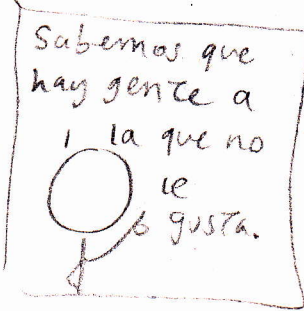 Sabemos que
hay gente a
la que no
le
gusta.